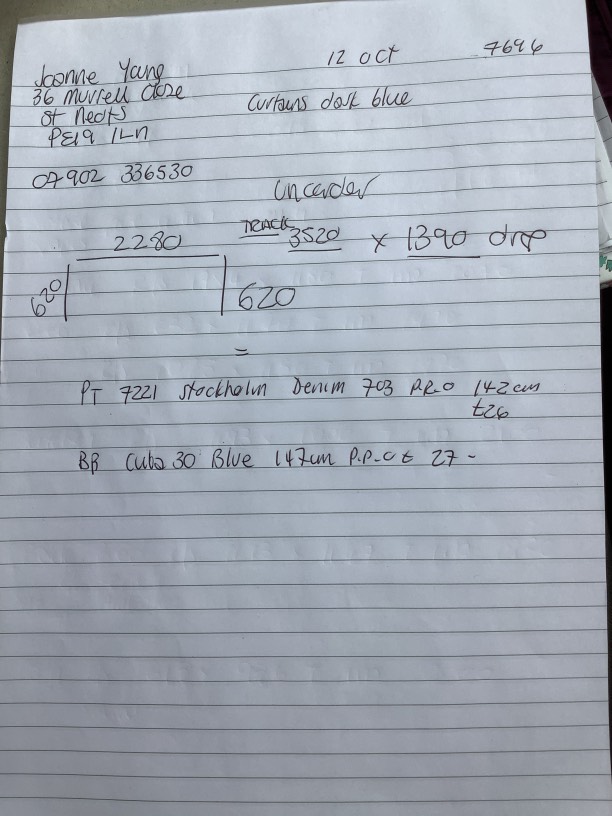 12 oct 7696
Joanne Yang
36 Murrell Close
St Neots
PE19 1LN
Curtains dark blue
07902 336530
uncorder
TRACK
2280 3520 x 1390 drop
620 620
=
PT 7221 Stockholm Denim 703 P.R.O 142cm
£26
BB Cuba 30 Blue 147cm P.P.C £ 27 -